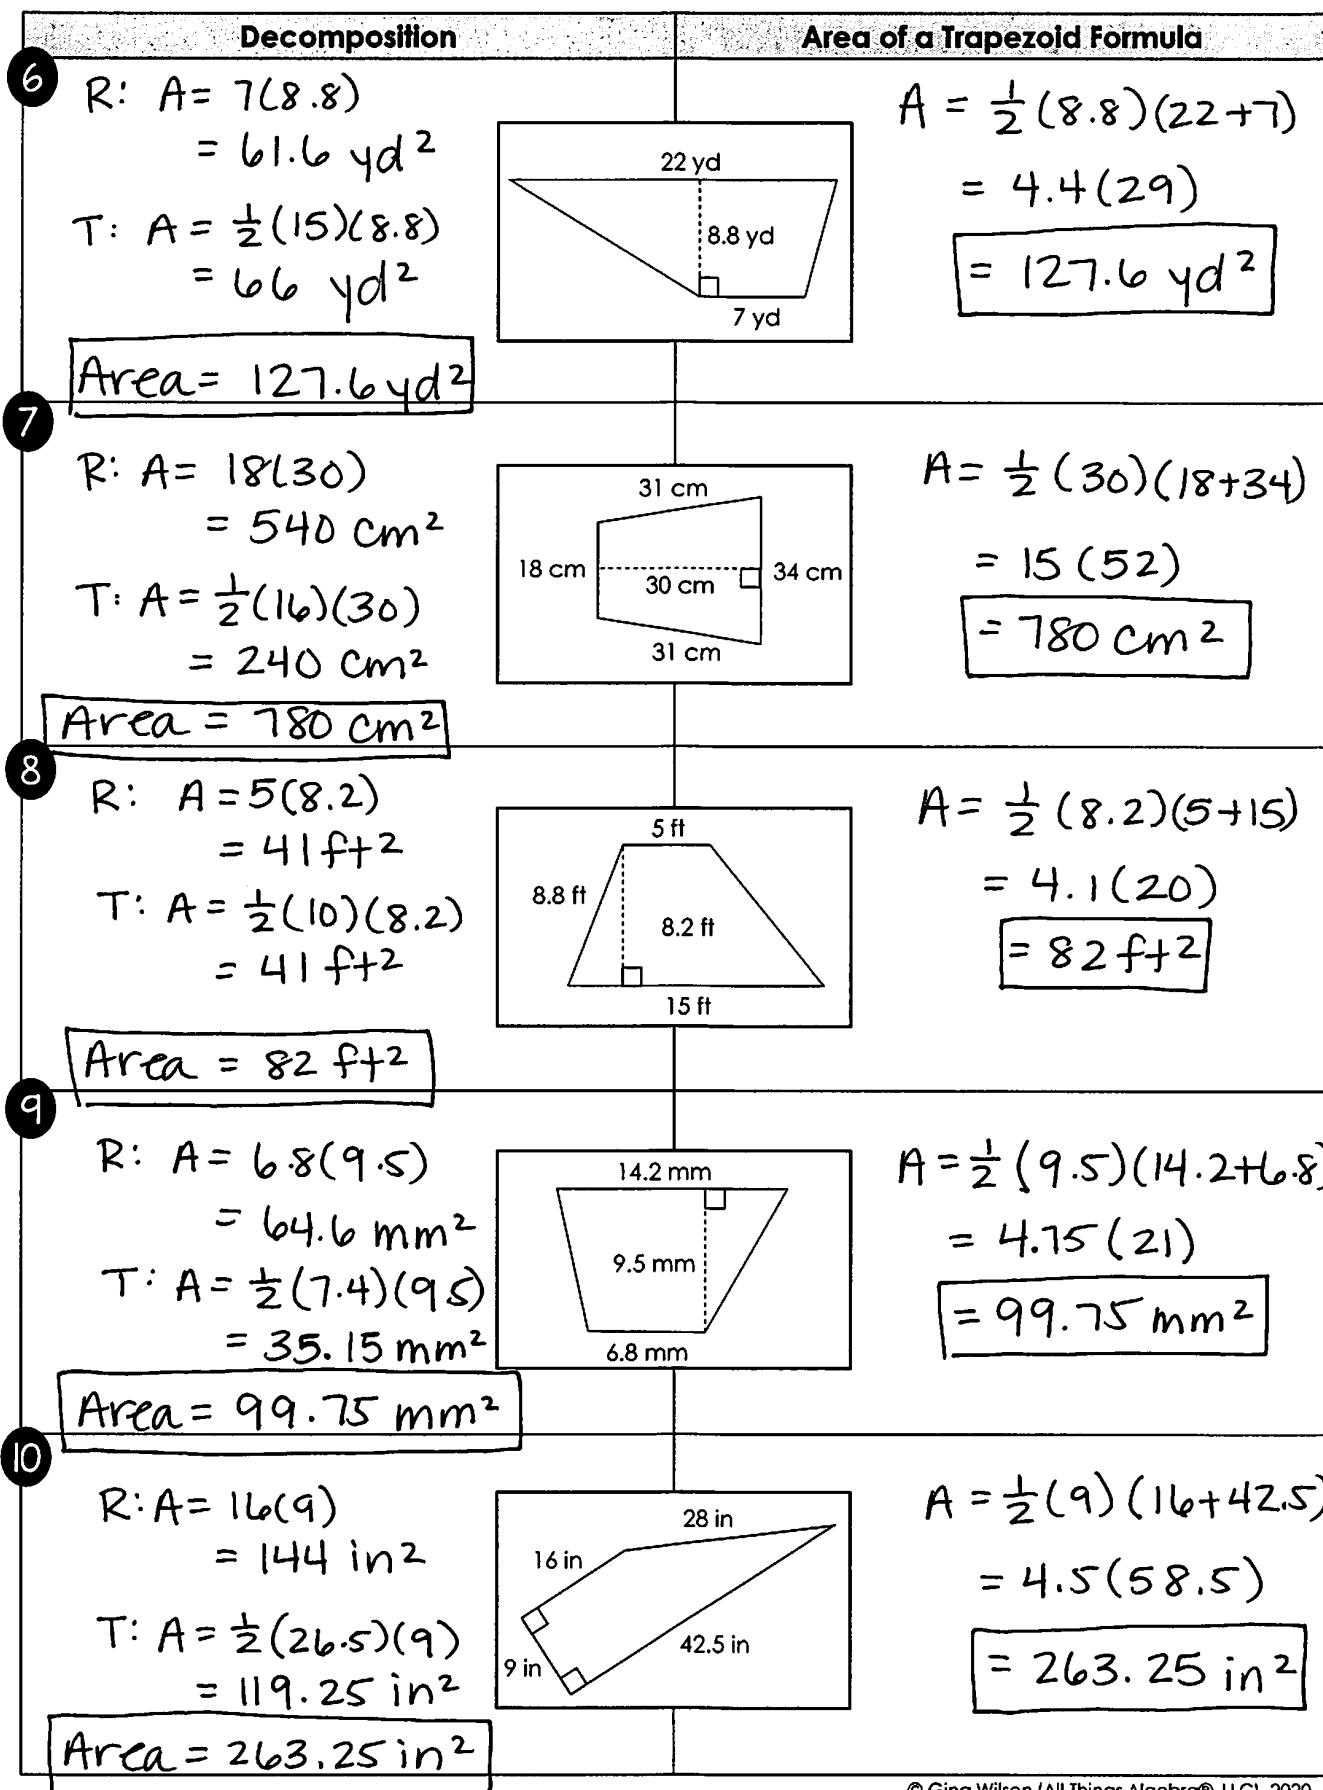 Decomposition
Area of a Trapezoid Formula
6
R: A = 7(8.8)
= 61.6 yd²
T: A = ½(15)(8.8)
= 66 yd²
Area = 127.6 yd²
22 yd
8.8 yd
7 yd
A = ½(8.8)(22+7)
= 4.4(29)
= 127.6 yd²
7
R: A = 18(30)
= 540 cm²
T: A = ½(16)(30)
= 240 cm²
Area = 780 cm²
31 cm
18 cm
30 cm
34 cm
31 cm
A = ½(30)(18+34)
= 15(52)
= 780 cm²
8
R: A = 5(8.2)
= 41 ft²
T: A = ½(10)(8.2)
= 41 ft²
Area = 82 ft²
5 ft
8.8 ft
8.2 ft
15 ft
A = ½(8.2)(5+15)
= 4.1(20)
= 82 ft²
9
R: A = 6.8(9.5)
= 64.6 mm²
T: A = ½(7.4)(9.5)
= 35.15 mm²
Area = 99.75 mm²
14.2 mm
9.5 mm
6.8 mm
A = ½(9.5)(14.2+6.8)
= 4.75(21)
= 99.75 mm²
10
R: A = 16(9)
= 144 in²
T: A = ½(26.5)(9)
= 119.25 in²
Area = 263.25 in²
28 in
16 in
42.5 in
9 in
A = ½(9)(16+42.5)
= 4.5(58.5)
= 263.25 in²
© Gina Wilson (All Things Algebra®, LLC), 2020